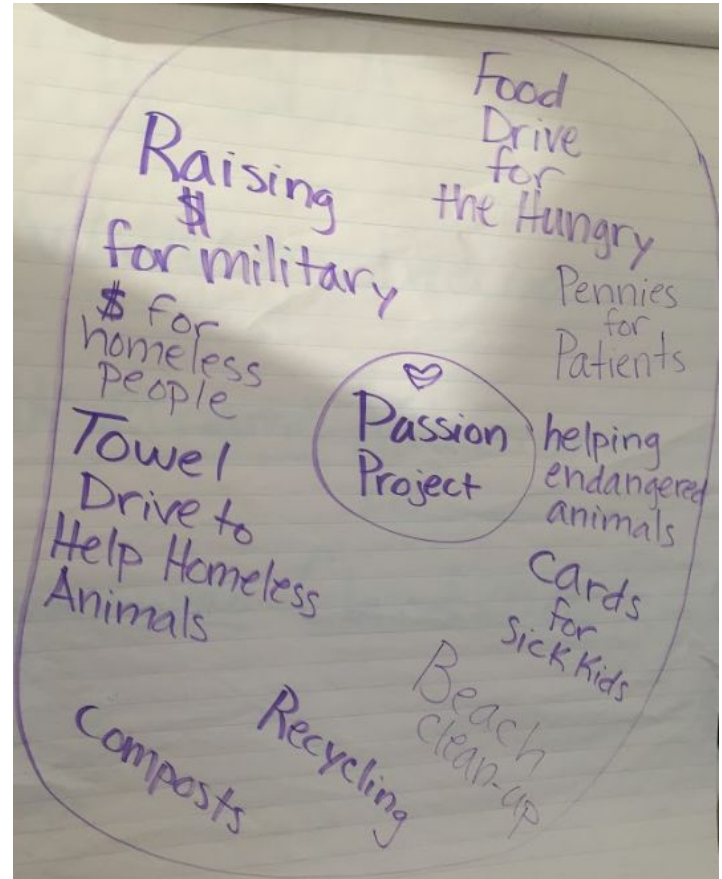 Food
Drive
for
the Hungry
Raising
$
for military
Pennies
for
Patients
$ for
homeless
people
♡
Passion
Project
helping
endangered
animals
Towel
Drive to
Help Homeless
Animals
Cards
for
Sick Kids
Beach
Clean-up
Recycling
Composts